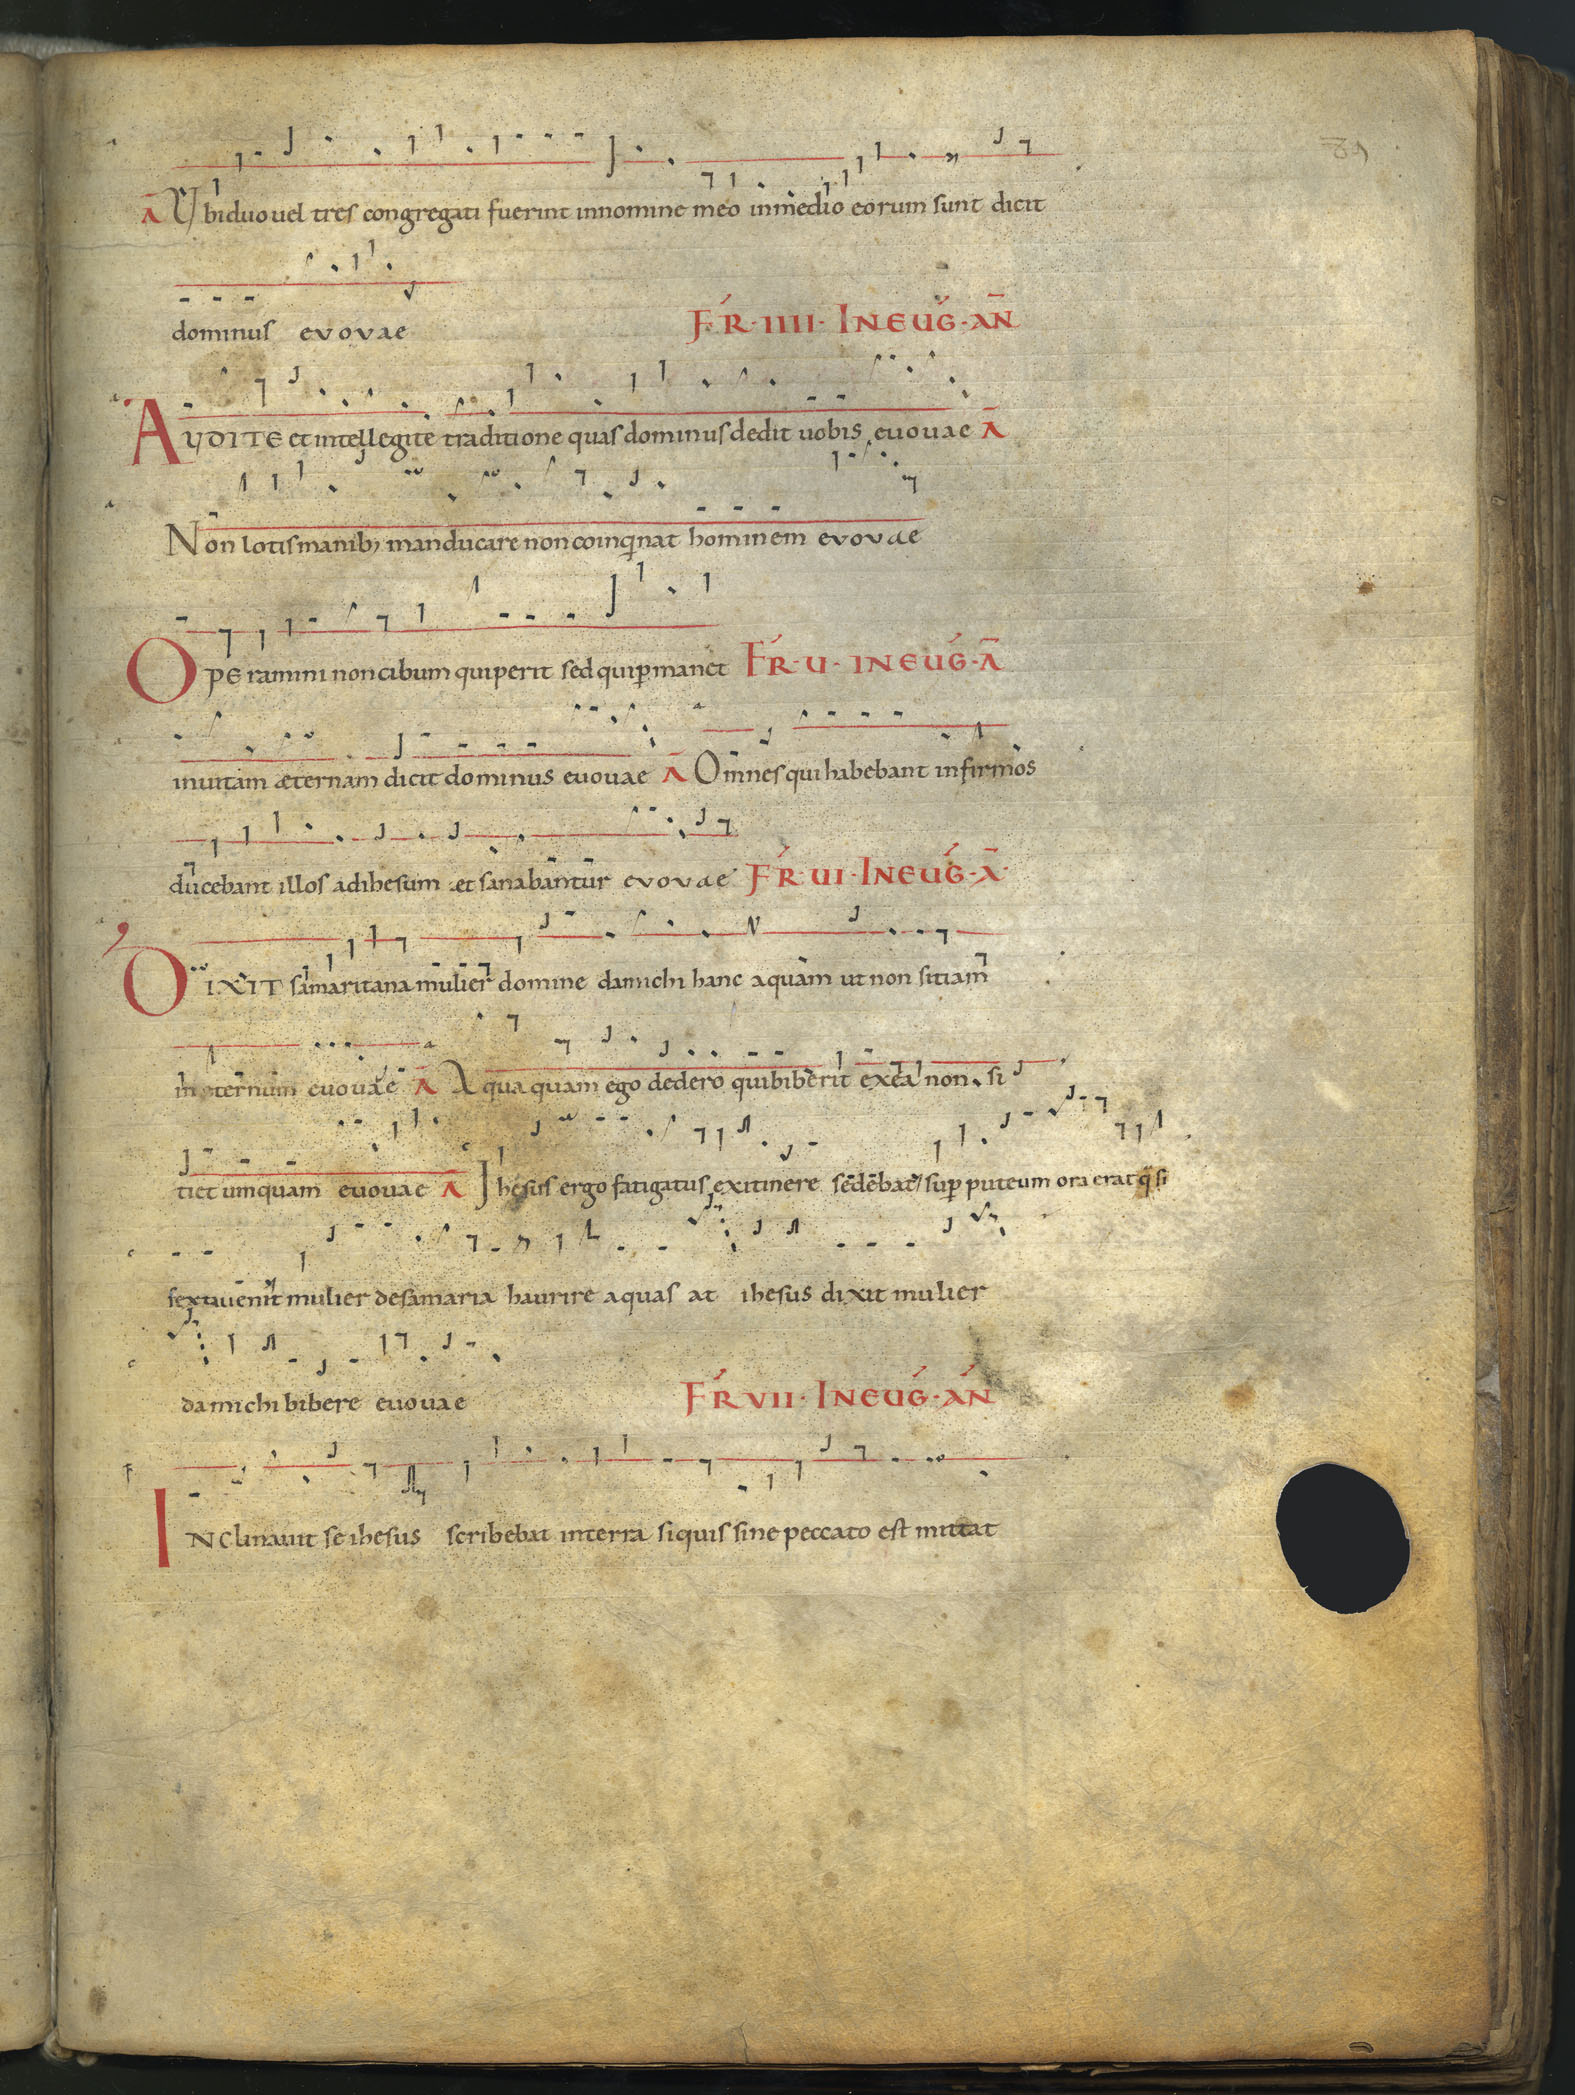 89
Ā Ubiduo uel tres congregati fuerint innomine meo inmedio eorum sunt dicit
dominus evovae FR·IIII· IN EUG·AN̄
AVDITE et intellegite traditione quas dominus dedit uobis euouae Ā
Non lotis manib; manducare non coinqinat hominem evovae
OPEramini non cibum qui perit sed qui ꝑmanet FR·U·IN EUG·Ā
inuitam æternam dicit dominus euouae Ā Omnes qui habebant infirmos
ducebant illos adihesum et sanabantur evovae FR·UI·IN EUG·Ā
DIXIT samaritana mulier domine damichi hanc aquam ut non sitiam
euouae Ā Aqua quam ego dedero qui biberit exea non si
tiet umquam euouae Ā Ihesus ergo fatigatus exitinere sedebat suꝑ puteum ora erat q̄si
sexta uenit mulier desamaria haurire aquas at ihesus dixit mulier
damichi bibere euouae FR VII· IN EUG·AN
INclinauit se ihesus scribebat interra siquis sine peccato est mittat